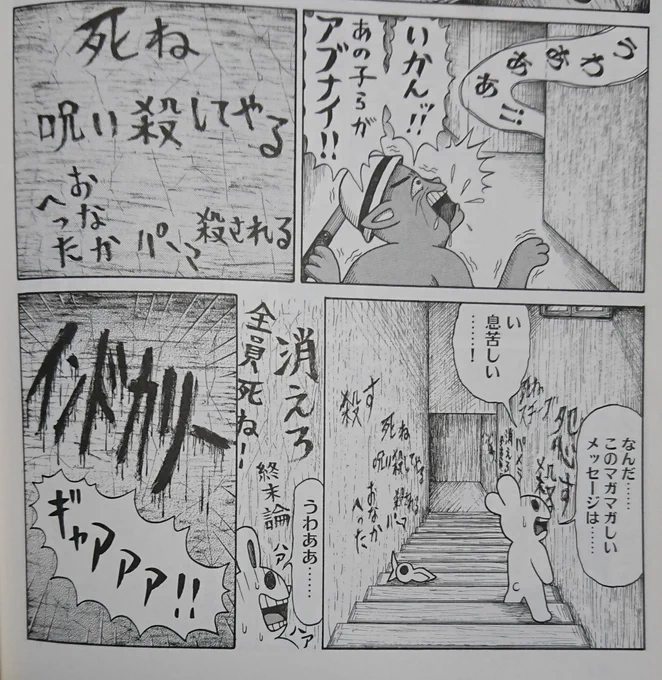 うわあああ!!!
いかんッ!!
あの子らが
アブナイ!!
死ね
呪い殺してやる
殺される
おなか
へった
なんだ……
このマガマガしい
メッセージは……
い
息苦しい
……!
死ね
消えろ
殺す
死ね
呪い殺してやる
殺される
おなか
へった
消えろ
全員死ね!
終末論
うわああ……
ハァ
ハァ
インドカリー
ギャアアア!!